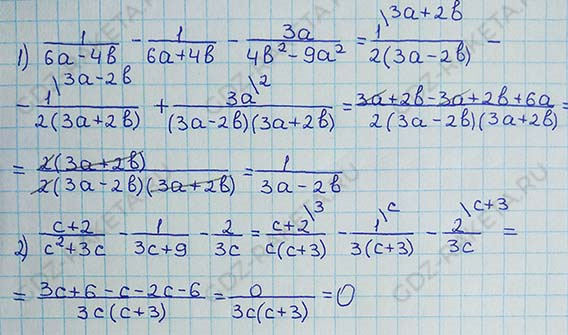 1) 1/(6a-4b) - 1/(6a+4b) - 3a/(4b²-9a²) = 1\3a+2b/(2(3a-2b)) -
- 1\3a-2b/(2(3a+2b)) + 3a\2/((3a-2b)(3a+2b)) = (3a+2b-3a+2b+6a)/(2(3a-2b)(3a+2b)) =
= 2(3a+2b)/(2(3a-2b)(3a+2b)) = 1/(3a-2b)
2) (c+2)/(c²+3c) - 1/(3c+9) - 2/(3c) = c+2\3/(c(c+3)) - 1\c/(3(c+3)) - 2\c+3/(3c) =
= (3c+6-c-2c-6)/(3c(c+3)) = 0/(3c(c+3)) = 0
GDZ-RAKETA.RU